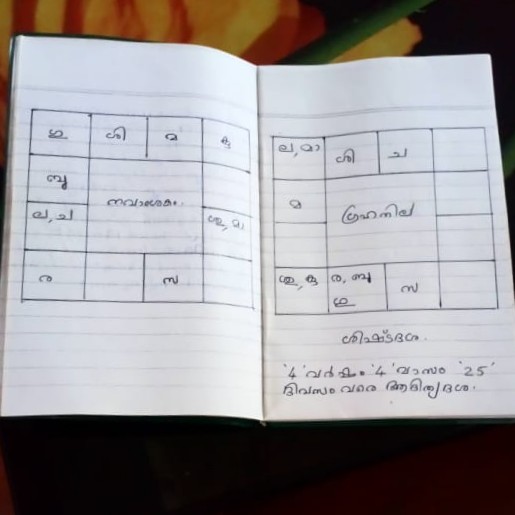 ഇ ശി മ കു
ബു
നവാംശകം.
ല, ച
ശു, മാ
ര സ
ല, മാ ശി ച
മ
ഗ്രഹനില
ശു, കു ര, ബു സ
ഇ
ശിഷ്ടദശ.
'4' വർഷം '4' മാസം '25'
ദിവസം വരെ ആദിത്യദശ.